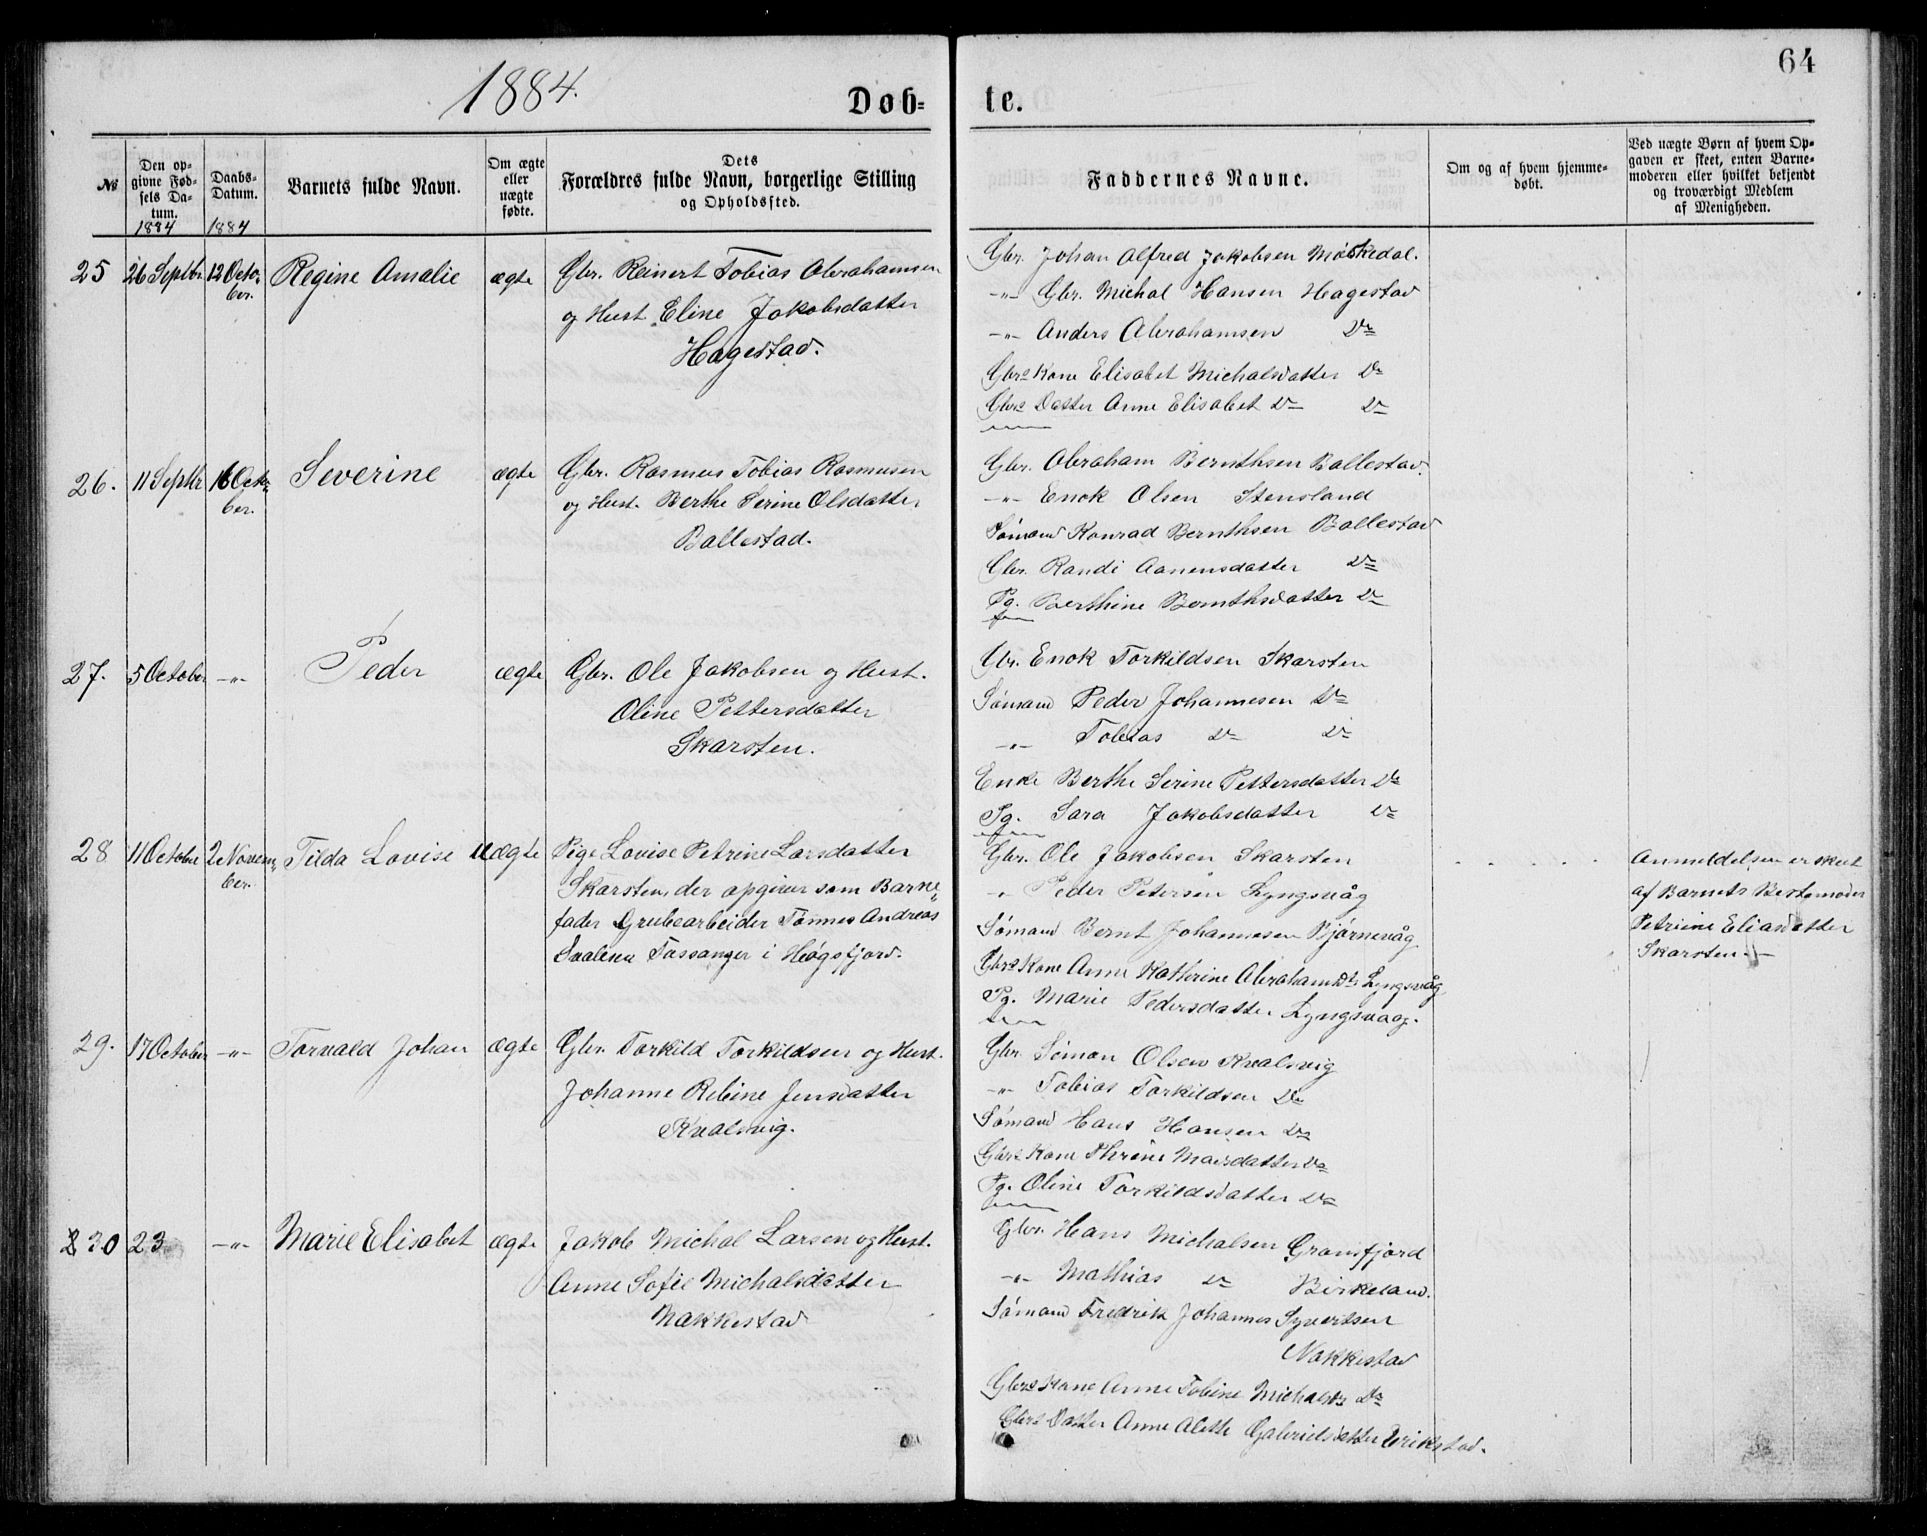 64
1884.
Døb- te.
№
Den op-
givne Fød-
sels Da-
tum.
1884
Daabs-
Datum.
1884
Barnets fulde Navn.
Om ægte
eller
uægte
fødte.
Dets
Forældres fulde Navn, borgerlige Stilling
og Opholdssted.
Faddernes Navne.
Om og af hvem hjemme-
døbt.
Ved uægte Børn af hvem Op-
gaven er skeet, enten Barne-
moderen eller hvilket bekjendt
og troværdigt Medlem
af Menigheden.
25 26 Septbr 12 Octo-
ber.
Regine Amalie
ægte
Gbr. Reinert Tobias Abrahamsen
og Hust Eline Jakobsdatter
Hagestad.
Gbr. Johan Alfred Jakobsen Møskedal.
-"- Gbr. Michal Hansen Hagestad
-"- Anders Abrahamsen Do
Gbrs Kone Elisabet Michalsdatter Do
Gbrs Datter Anne Elisabet Do Do
26. 11 Septbr 16 Octo-
ber.
Severine
ægte
Gbr. Rasmus Tobias Rasmusen
og Hust. Berthe Serine Olsdatter
Ballestad.
Gbr. Abraham Bernthsen Ballestad.
-"- Enok Olsen Stensland
Sømand Konrad Bernthsen Ballestad
Gbr. Randi Aanensdatter Do
Pg. Berthine Bernthsdatter Do
27. 5 October -"-
Peder
ægte
Gbr. Ole Jakobsen og Hust.
Oline Pettersdatter
Skarsten.
Gbr. Enok Torkildsen Skarsten
Sømand Peder Johannesen Do
-"- Tobias Do Do
Enke Berthe Serine Pettersdatter Do
Pg. Sara Jakobsdatter Do
28 11 October 2 Novem-
ber.
Tilda Lovise
uægte
Pige Lovise Petrine Larsdatter
Skarsten, der opgiver som Barne
fader Grubearbeider Tønnes Andreas
Tossanger i Høgsfjord.
Gbr. Ole Jakobsen Skarsten
-"- Peder Petersen Lyngsvåg
Sømand Bernt Johannesen Bjørnevåg
Gbrs Kone Anne Katherine Abrahamsdt. Lyngsvåg
Pg. Marie Pedersdatter Lyngsvaag.
Anmeldelsen er skeet
af Barnets Bestemoder
Petrine Eliasdatter
Skarsten.-
29. 17 October -"-
Torvald Johan
ægte
Gbr. Torkild Torkildsen og Hust.
Johanne Rebine Jensdatter
Kvalsvig.
Gbr. Simon Olsen Kvalsvig
-"- Tobias Torkildsen Do
Sømand Hans Hansen Do
Gbrs Kone Do
Pg. Oline Torkildsdatter Do
30 23 -"-
Marie Elisabet
ægte
Jakob Michal Larsen og Hust.
Anne Sofie Michalsdatter
Nakkestad
Gbr. Hans Michalsen Gransfjord
-"- Mathias Do Birkeland.
Sømand Fredrik Johannes Syvertsen
Nakkestad
Gbrs Kone Anne Tobine Michalsdt. Do
Gbrs Datter Anne Alethe Gabrielsdatter Erikstad.